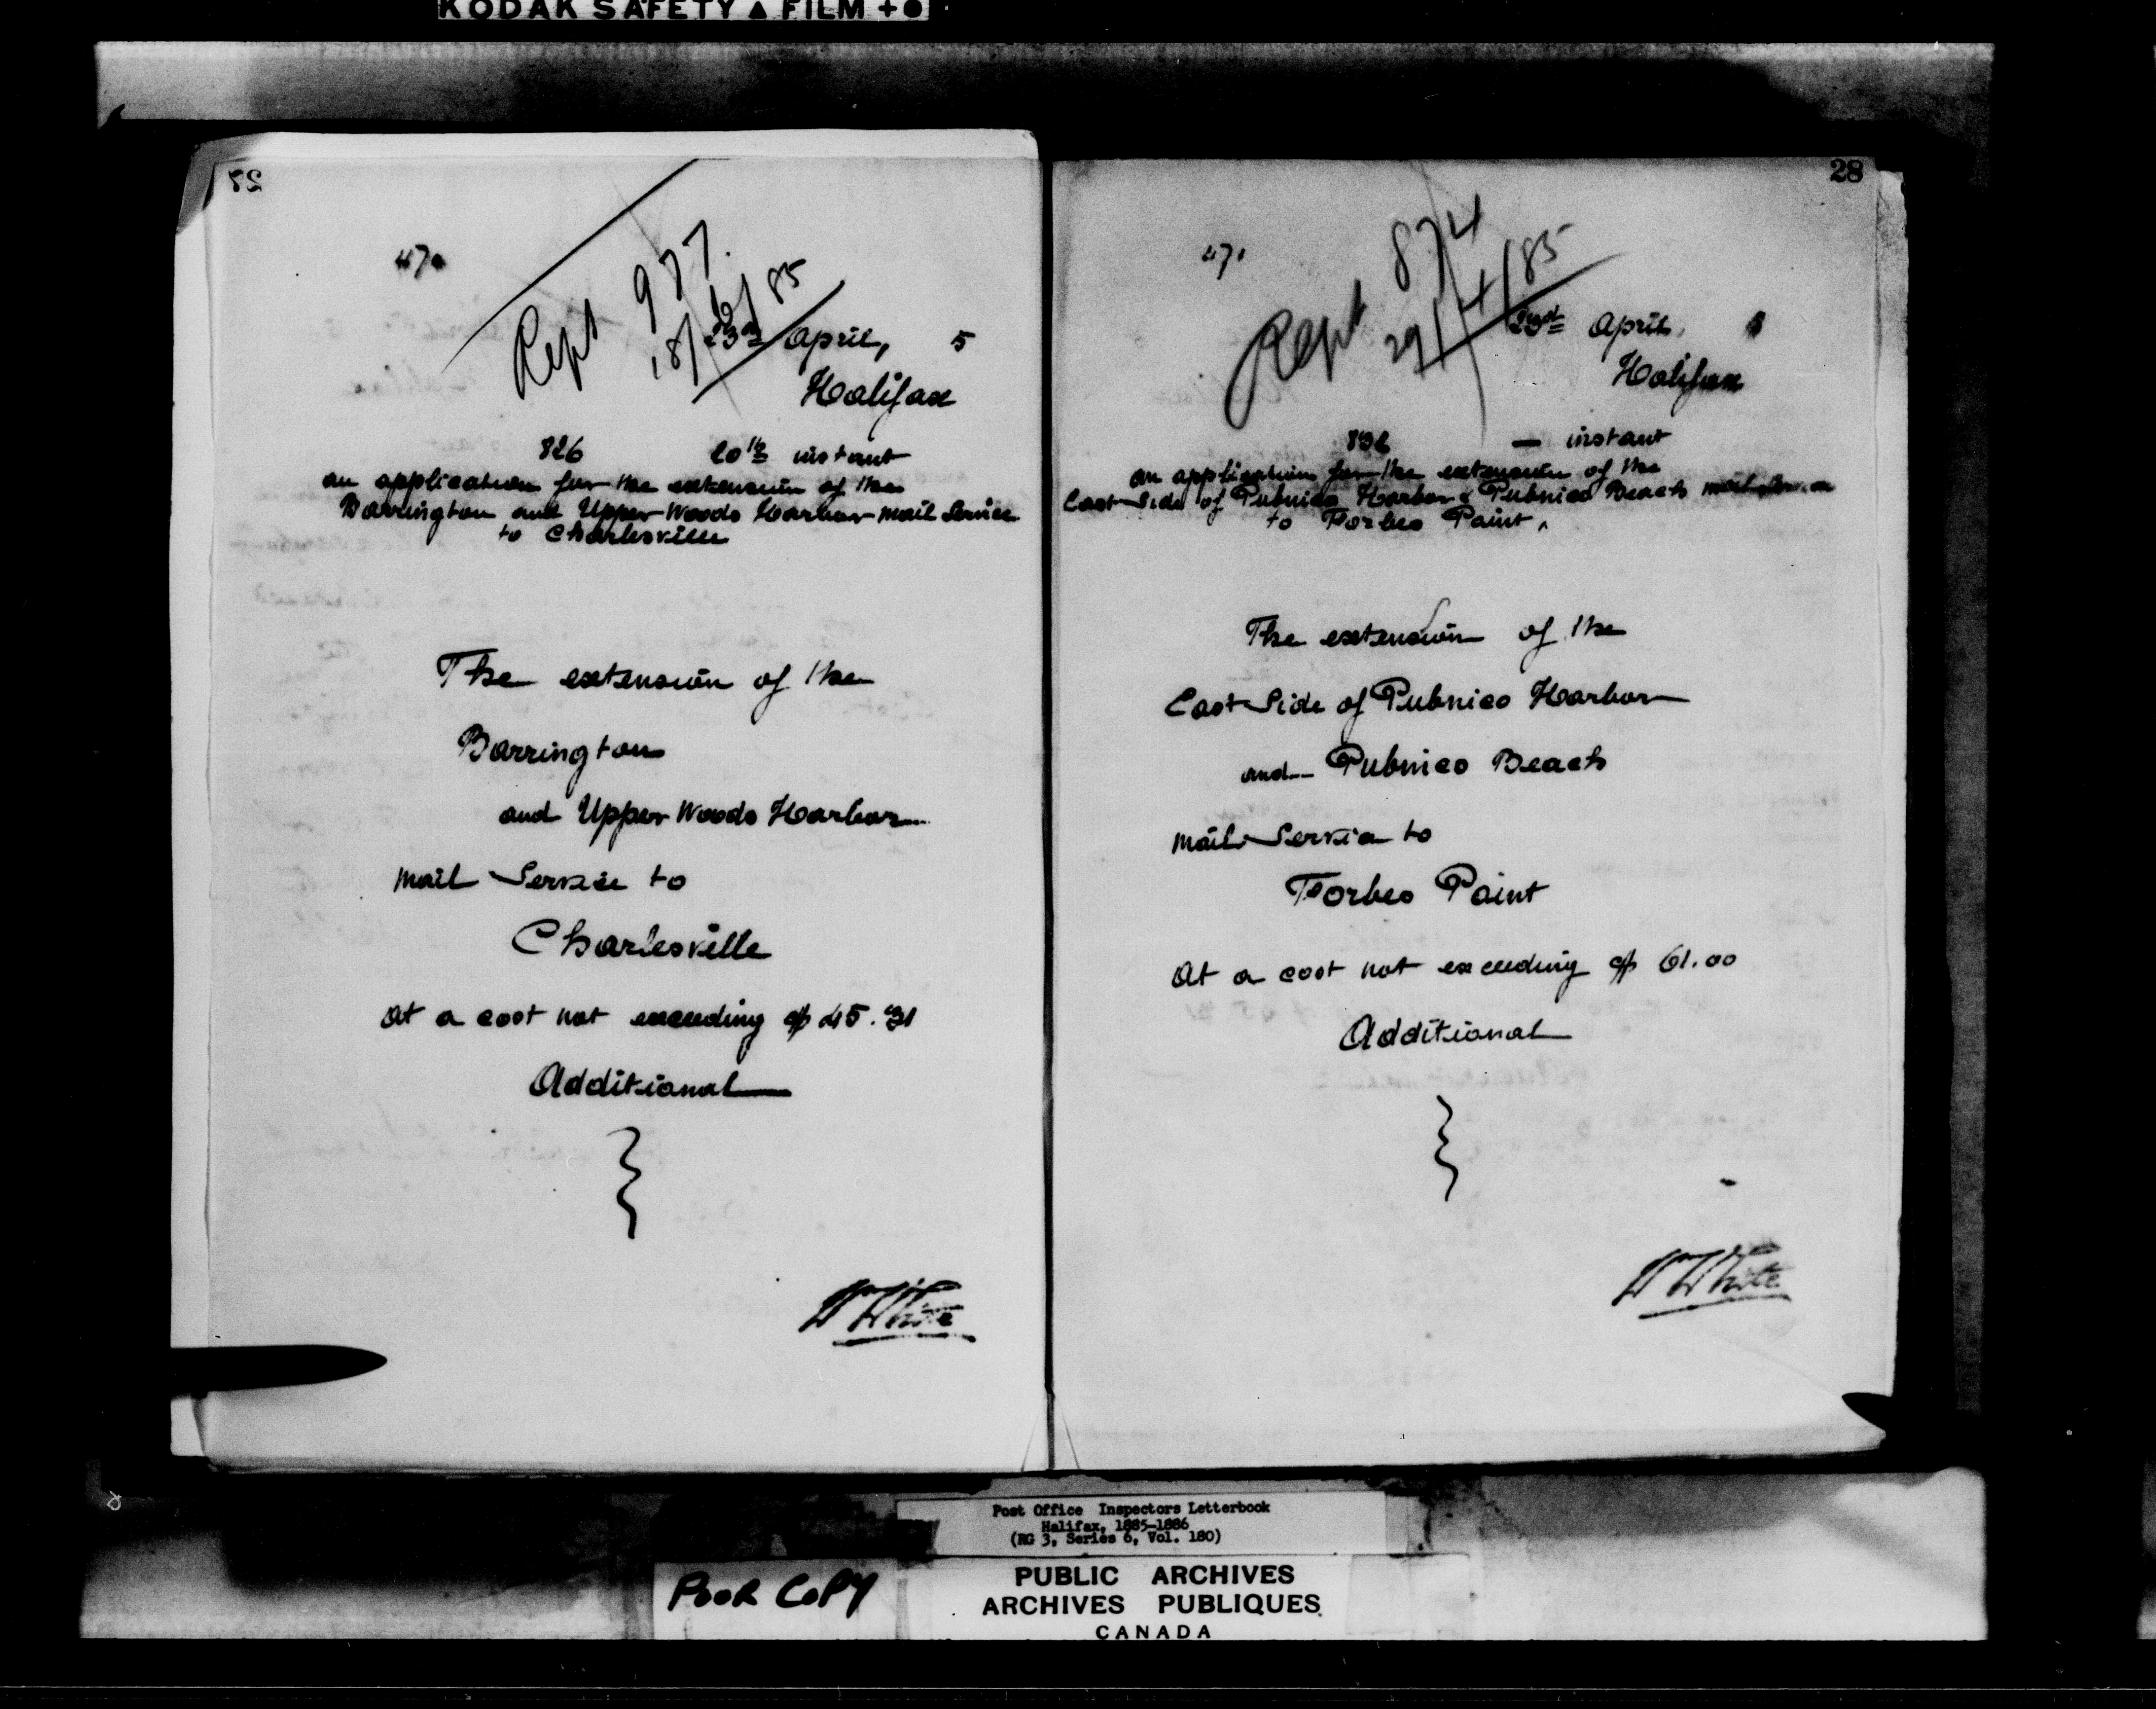 KODAK SAFETY ▲ FILM + ●
470
Rept 977.
18/6/85
23rd April, 5
Halifax
826 20th instant
an application for the extension of the
Barrington and Upper Woods Harbor mail Service
to Charlesville
The extension of the
Barrington
and Upper Woods Harbor
mail Service to
Charlesville
at a cost not exceeding $45.31
Additional
W White
28
471
Rept 874
29/4/85
23rd April,
Halifax
832 — instant
an application for the extension of the
East Side of Pubnico Harbor & Pubnico Beach mail Service
to Forbes Point,
The extension of the
East Side of Pubnico Harbor
and Pubnico Beach
mail Service to
Forbes Point
at a cost not exceeding $61.00
Additional
W White
Post Office Inspectors Letterbook
Halifax, 1885-1886
(RG 3, Series 6, Vol. 180)
POOR COPY
PUBLIC ARCHIVES
ARCHIVES PUBLIQUES
CANADA